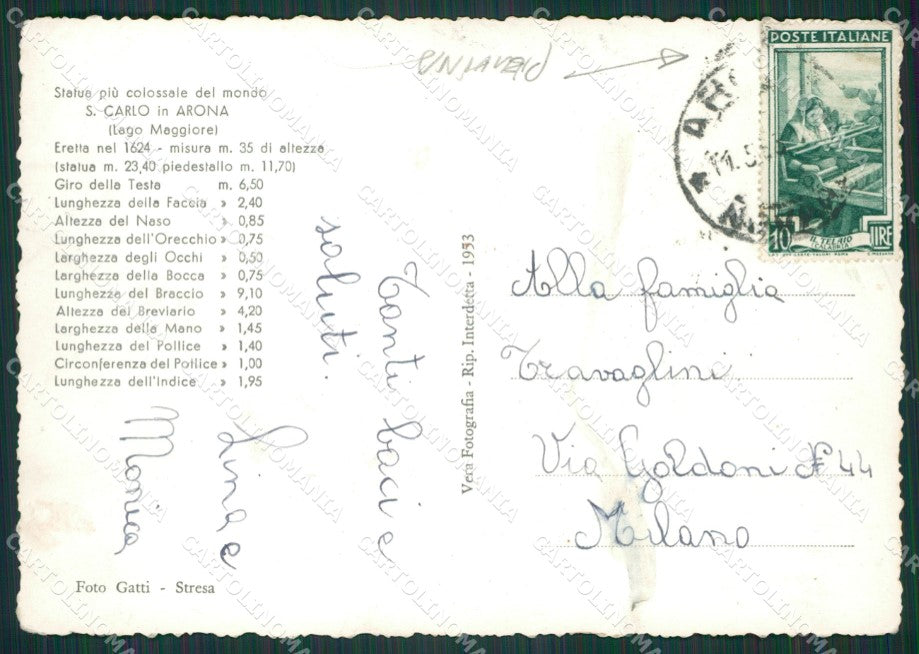 Statua più colossale del mondo
S. CARLO in ARONA
(Lago Maggiore)
Eretta nel 1624 - misura m. 35 di altezza
(statua m. 23,40 piedestallo m. 11,70)
Giro della Testa m. 6,50
Lunghezza della Faccia » 2,40
Altezza del Naso » 0,85
Lunghezza dell'Orecchio » 0,75
Larghezza degli Occhi » 0,50
Larghezza della Bocca » 0,75
Lunghezza del Braccio » 9,10
Altezza del Breviario » 4,20
Larghezza della Mano » 1,45
Lunghezza del Pollice » 1,40
Circonferenza del Pollice » 1,00
Lunghezza dell'Indice » 1,95
Tanti baci e
saluti.
Lina e
Monica
Foto Gatti - Stresa
Vera Fotografia - Rip. Interdetta - 1953
POSTE ITALIANE
10 LIRE
IL TELAIO
CALABRIA
Alla famiglia
Travaglini
Via Goldoni N 44
Milano
CARTOLINOMANIA